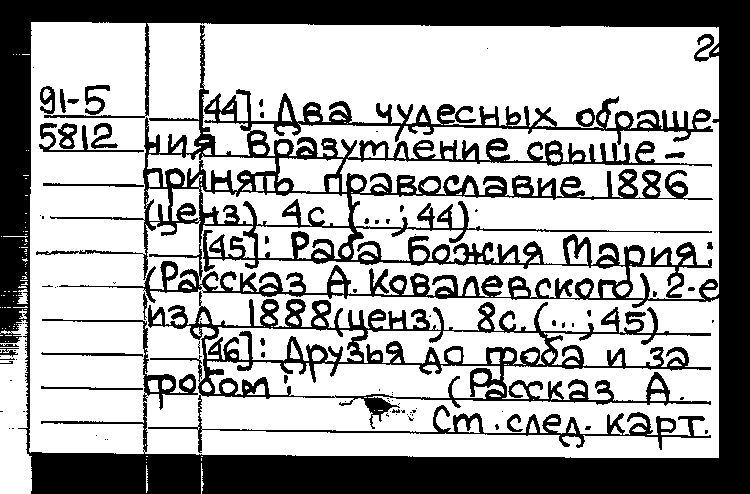 24
91-5 [44]: Два чудесных обраще-
5812 ния. Вразумление свыше -
принять православие. 1886
(ценз.). 4с. (...; 44).
[45]: Раба Божия Мария:
(Рассказ А. Ковалевского). 2-е
изд. 1888(ценз.). 8с. (...; 45).
[46]: Друзья до гроба и за
гробом: (Рассказ А.
См. след. карт.